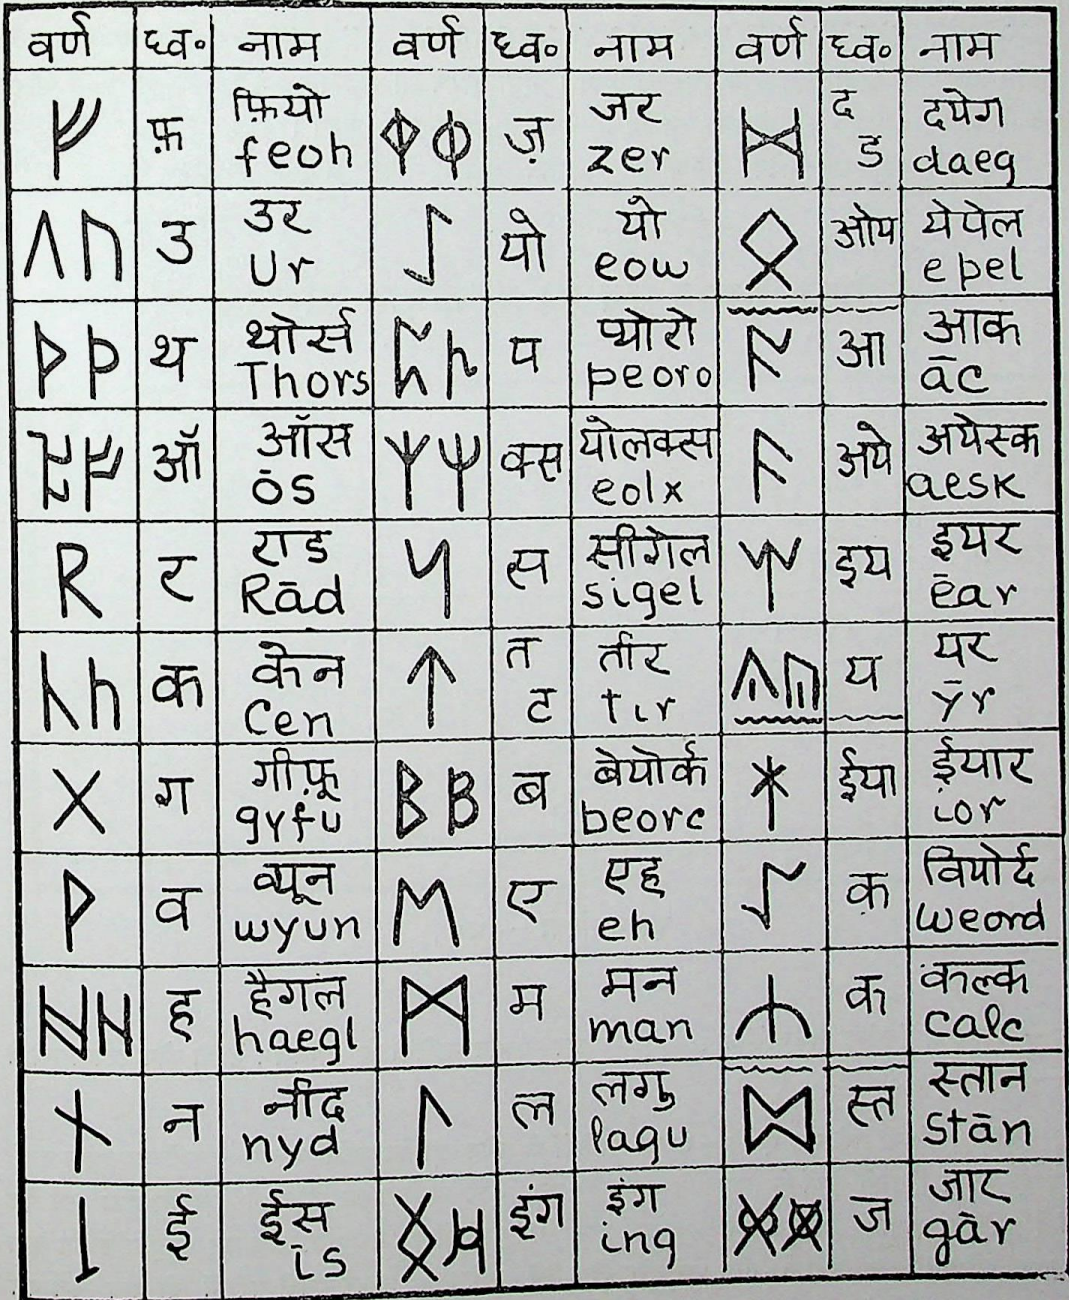 वर्ण ध्व॰ नाम वर्ण ध्व॰ नाम वर्ण ध्व॰ नाम
ᚠ फ़ फ़ियो feoh ᛄ ज़ जर zer ᛞ द ड दयेग daeg
ᚢ उ उर Ur ᛇ यो यो eow ᛟ ओय येपेल epel
ᚦ थ थोर्स Thors ᛈ प प्योरो peoro ᚪ आ आक āc
ᚩ ऑ ऑस ōs ᛉ ᛘ क्स योलक्स eolx ᚫ अये अयेस्क aesk
ᚱ र राड Rād ᛋ स सीगेल sigel ᛠ इय इयर ēar
ᚳ क केन Cen ᛏ त ट तीर tır ᚣ य यर ȳr
ᚷ ग गीफ़ू gyfu ᛒ ब बेयोर्क beorc ᛡ ईया ईयार ior
ᚹ व व्यून wyun ᛖ ए एह eh क वियोर्द weord
ᚻ ᚺ ह हैगल haegl ᛗ म मन man ᛣ क कल्क calc
ᚾ न नीद nyd ᛚ ल लगु lagu ᛥ स्त स्तान Stān
ᛁ ई ईस īs ᛝ इंग इंग ing ᚸ ज जार gār